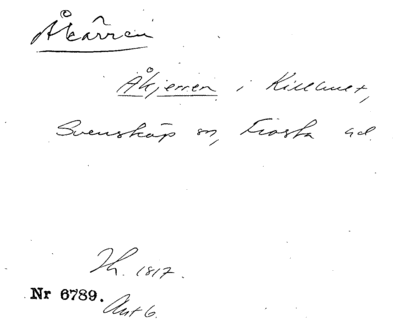 Åkärren
Åkjerren i Killhult,
Svensköp sn, Frosta hd.
Th. 1817.
Nr 6789.
Ant 6.